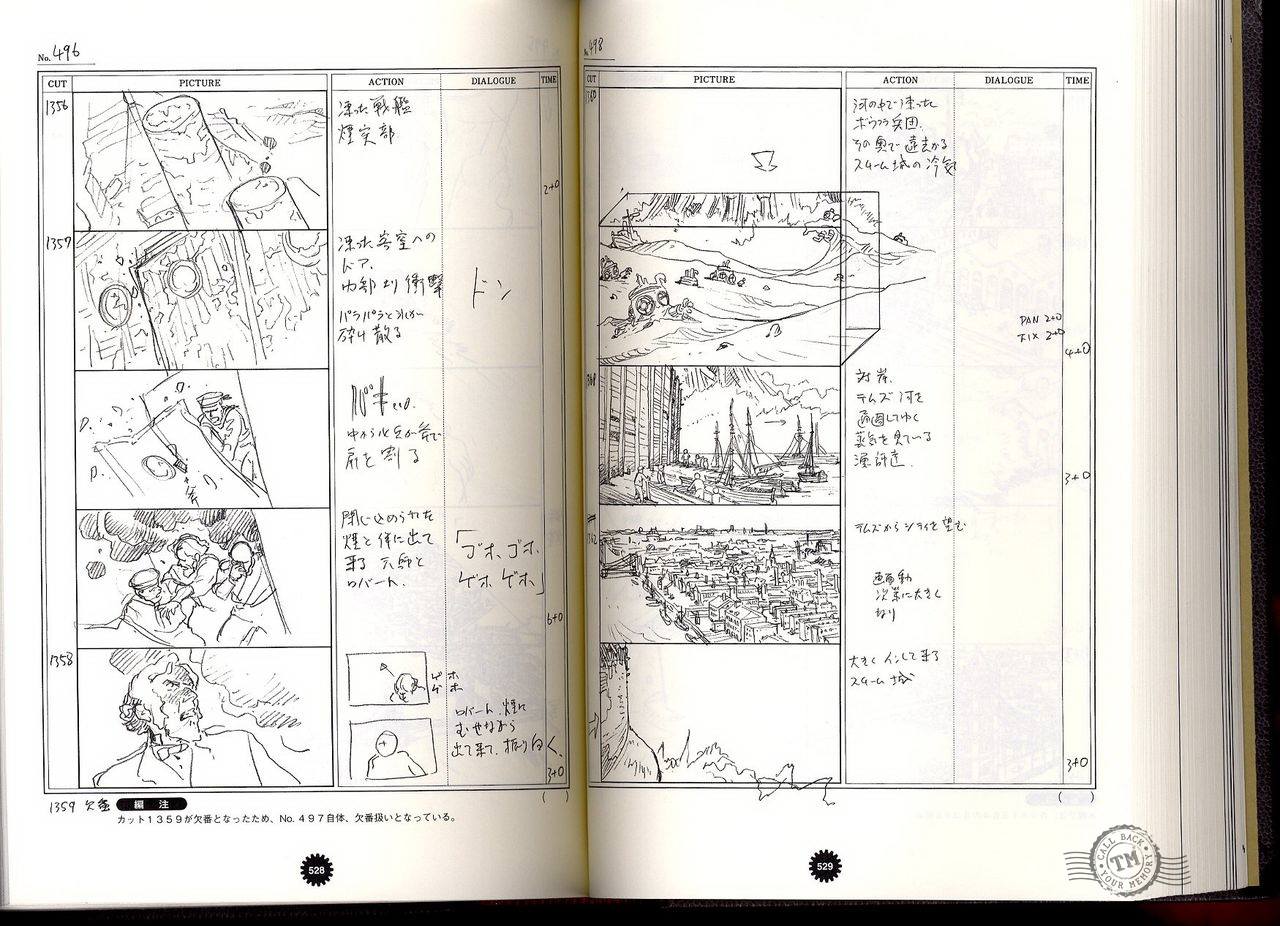 No. 496
CUT PICTURE ACTION DIALOGUE TIME
1356
凍った戦艦
煙突部
2+0
1357
凍った
ドア.
内部より衝撃
ドン
パラパラと氷が
砕け散る
中から水兵が斧で
扉を割る
閉じ込められた
煙と伴に出て
来る
ロバート.
「ゴホ、ゴホ、
ゲホ ゲホ」
6+0
1358
ロバート、煙に
むせながら
出て来て、振り向く、
3+0
1359 欠番 編 注
( )
カット1359が欠番となったため、No. 497自体、欠番扱いとなっている。
528
No. 498
CUT PICTURE ACTION DIALOGUE TIME
1360
河の中で凍った
兵団.
その奥で遠去かる
スチーム城の冷気
PAN 2+0
FIX 2+0
4+0
対岸.
テムズ河を
通過してゆく
蒸気を見ている
3+0
1362
テムズからシティを望む
画面動
次第に大きく
なり
大きくインして来る
スチーム城
3+0
( )
529
CALL BACK
TM
YOUR MEMORY